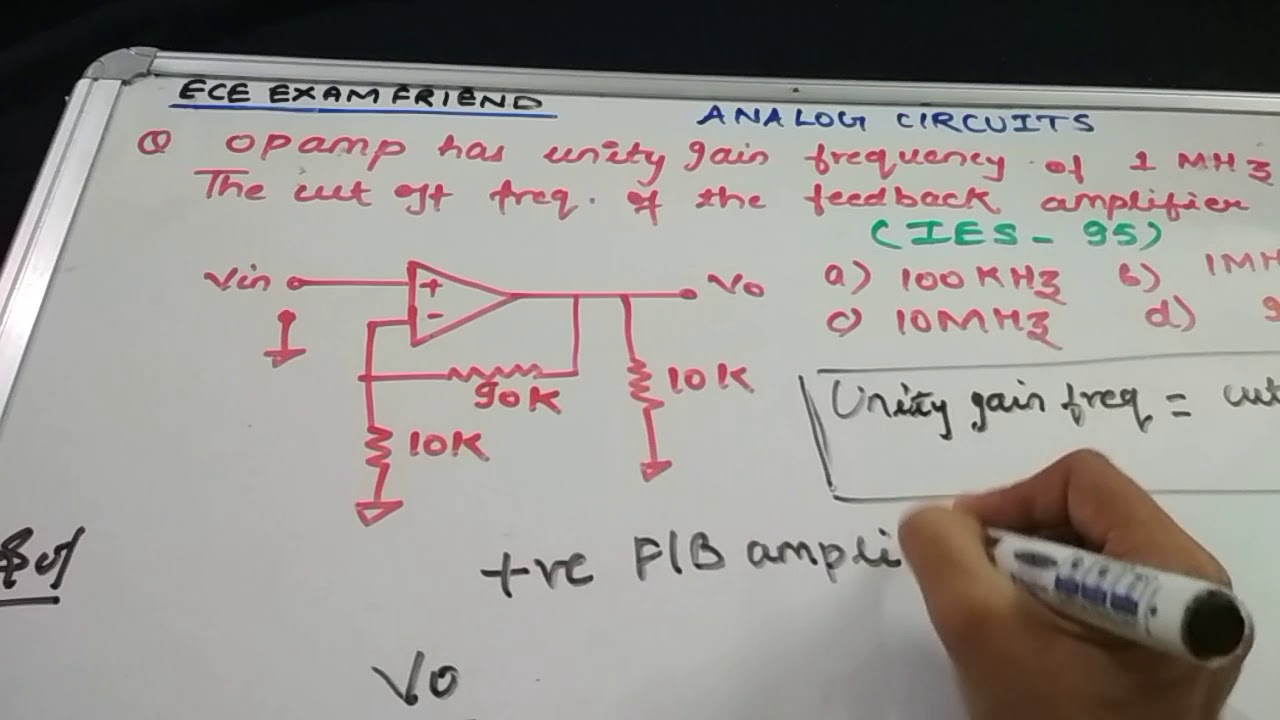 ECE EXAM FRIEND
ANALOG CIRCUITS
Q opamp has unity gain frequency of 1 MHz
The cut off freq. of the feedback amplifier
(IES - 95)
a) 100 KHz b) 1MH
c) 10MHz d)
Vin
+
-
Vo
90K
10K
10K
Unity gain freq = cut
Sol
+ve F/B ampli
Vo